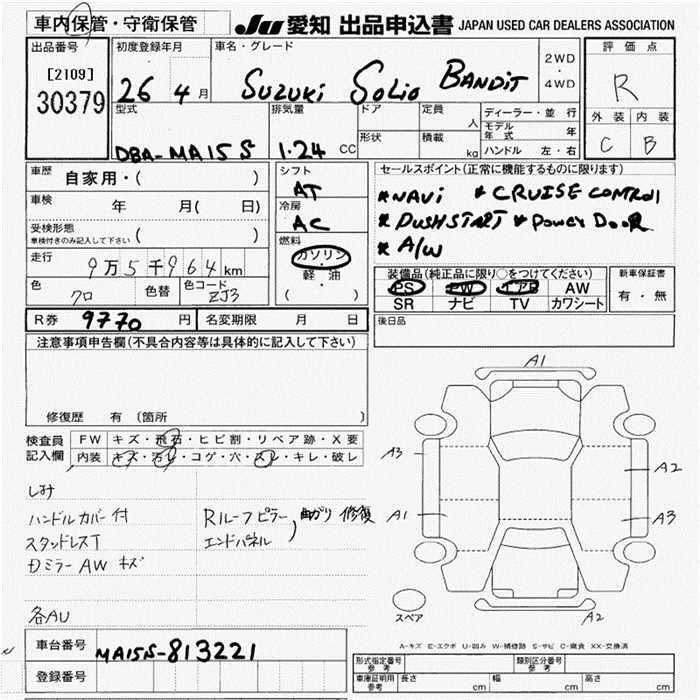 車内保管・守衛保管 JU 愛知 出品申込書 JAPAN USED CAR DEALERS ASSOCIATION
出品番号 初度登録年月 車名・グレード 評価点
[2109] 30379
26 4月 SUZUKI SOLIO BANDIT 2WD・4WD R
型式 排気量 ドア 定員 人 ディーラー・並行 外装 内装
形状 積載 kg モデル年式 年
DBA-MA15S 1.24 CC ハンドル 左・右 C B
車歴 自家用・( ) シフト AT セールスポイント(正常に機能するものに限ります)
車検 年 月(日) 冷房 AC *NAVi *CRUISE CONTROL
受検形態 車検付きのみ記入して下さい ( ) *PUSHSTART *POWER DOOR
燃料 ガソリン・軽・油 ( ) *A/W
走行 9万5千964km
装備品(純正品に限り○をつけてください) 新車保証書
色 クロ 色替 色コード ZJ3 PS PW エアB AW 有・無
SR ナビ TV カワシート
R券 9770円 名変期限 月 日 後日品
注意事項申告欄(不具合内容等は具体的に記入して下さい)
修復歴 有 (箇所 )
検査員記入欄 FW キズ・飛石・ヒビ割・リペア跡・X要
内装 キズ・汚レ・コゲ・穴・スレ・キレ・破レ
しみ
ハンドルカバー付 Rルーフピラー 曲がり 修復
スタッドレスT エンドパネル
Dミラー AW キズ
各AU
A1
A3 A2
A1 A3
スペア A2
A-キズ E-エクボ U-凹み W-補修跡 S-サビ C-腐食 XX-交換済
車台番号 MA15S-813221
登録番号
形式指定番号 参考 類別区分番号 参考
車庫証明用 参考 長さ cm 幅 cm 高さ cm